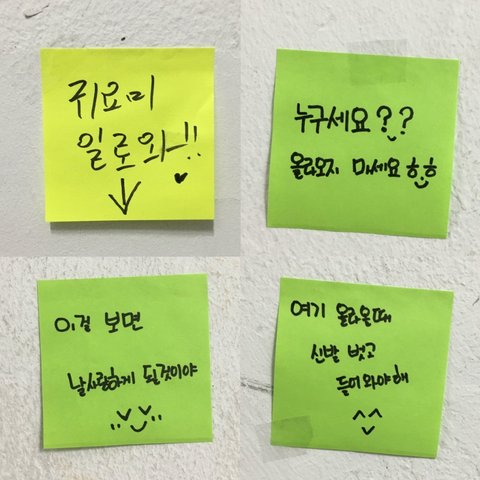 귀요미
일로와~!!
누구세요??
올라오지 마세요ㅎㅎ
이걸 보면
날사랑하게 될것이야
여기 올라올때
신발 벗고
들어와야해
^^